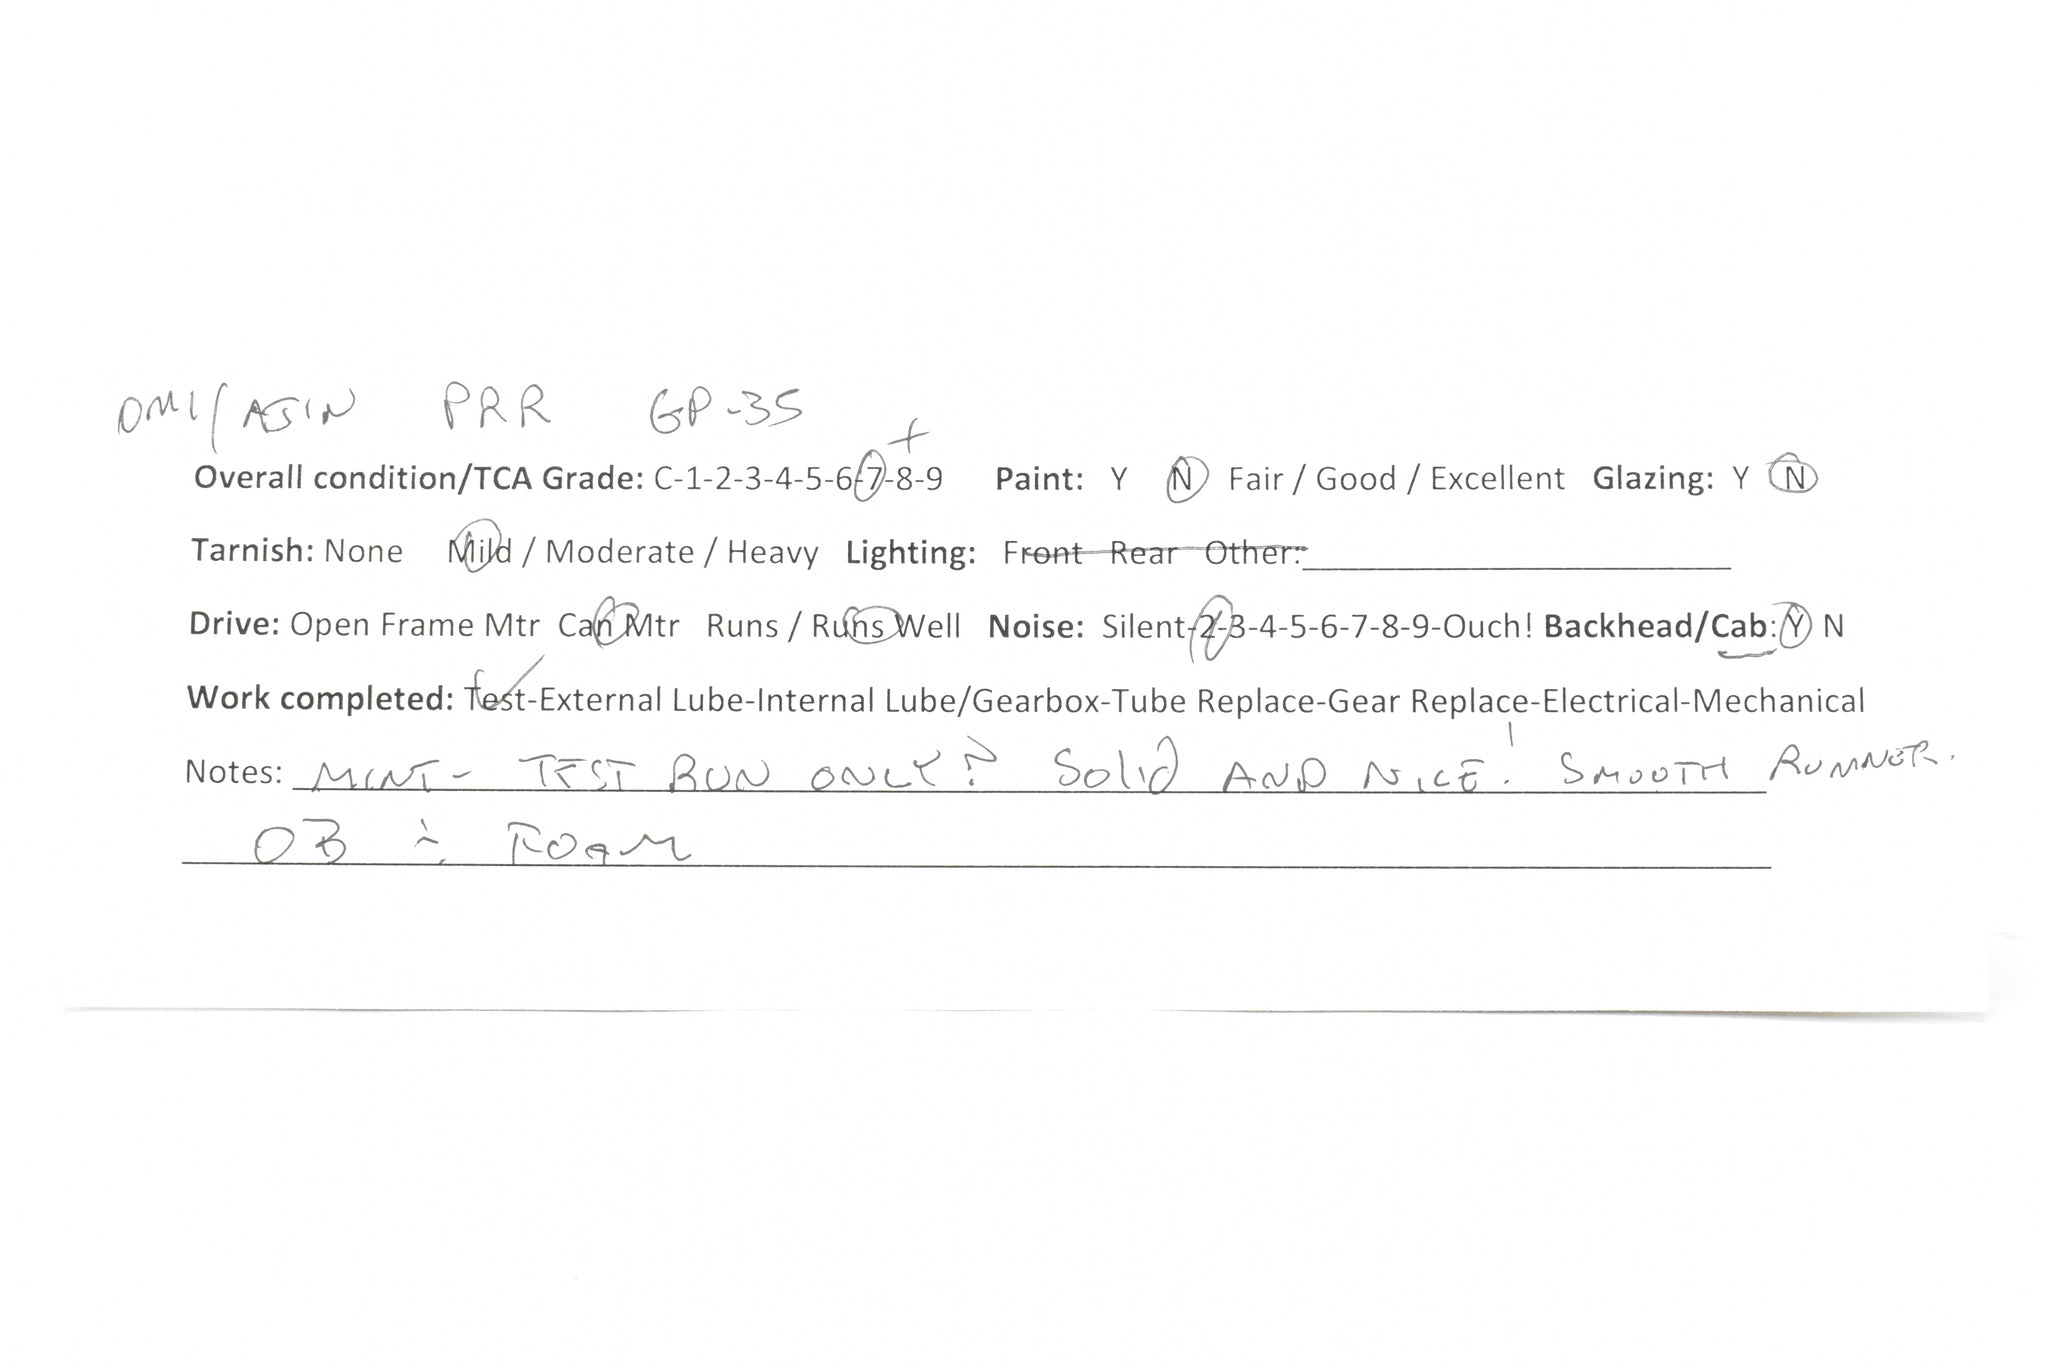 OMI/AJIN PRR GP-35
+
Overall condition/TCA Grade: C-1-2-3-4-5-6-7-8-9 Paint: Y N Fair / Good / Excellent Glazing: Y N
Tarnish: None Mild / Moderate / Heavy Lighting: Front Rear Other:
Drive: Open Frame Mtr Can Mtr Runs / Runs Well Noise: Silent-2-3-4-5-6-7-8-9-Ouch! Backhead/Cab: Y N
Work completed: Test-External Lube-Internal Lube/Gearbox-Tube Replace-Gear Replace-Electrical-Mechanical
Notes: MINT- TEST RUN ONLY? Solid AND NICE! SMOOTH RUNNER.
OB + FOAM